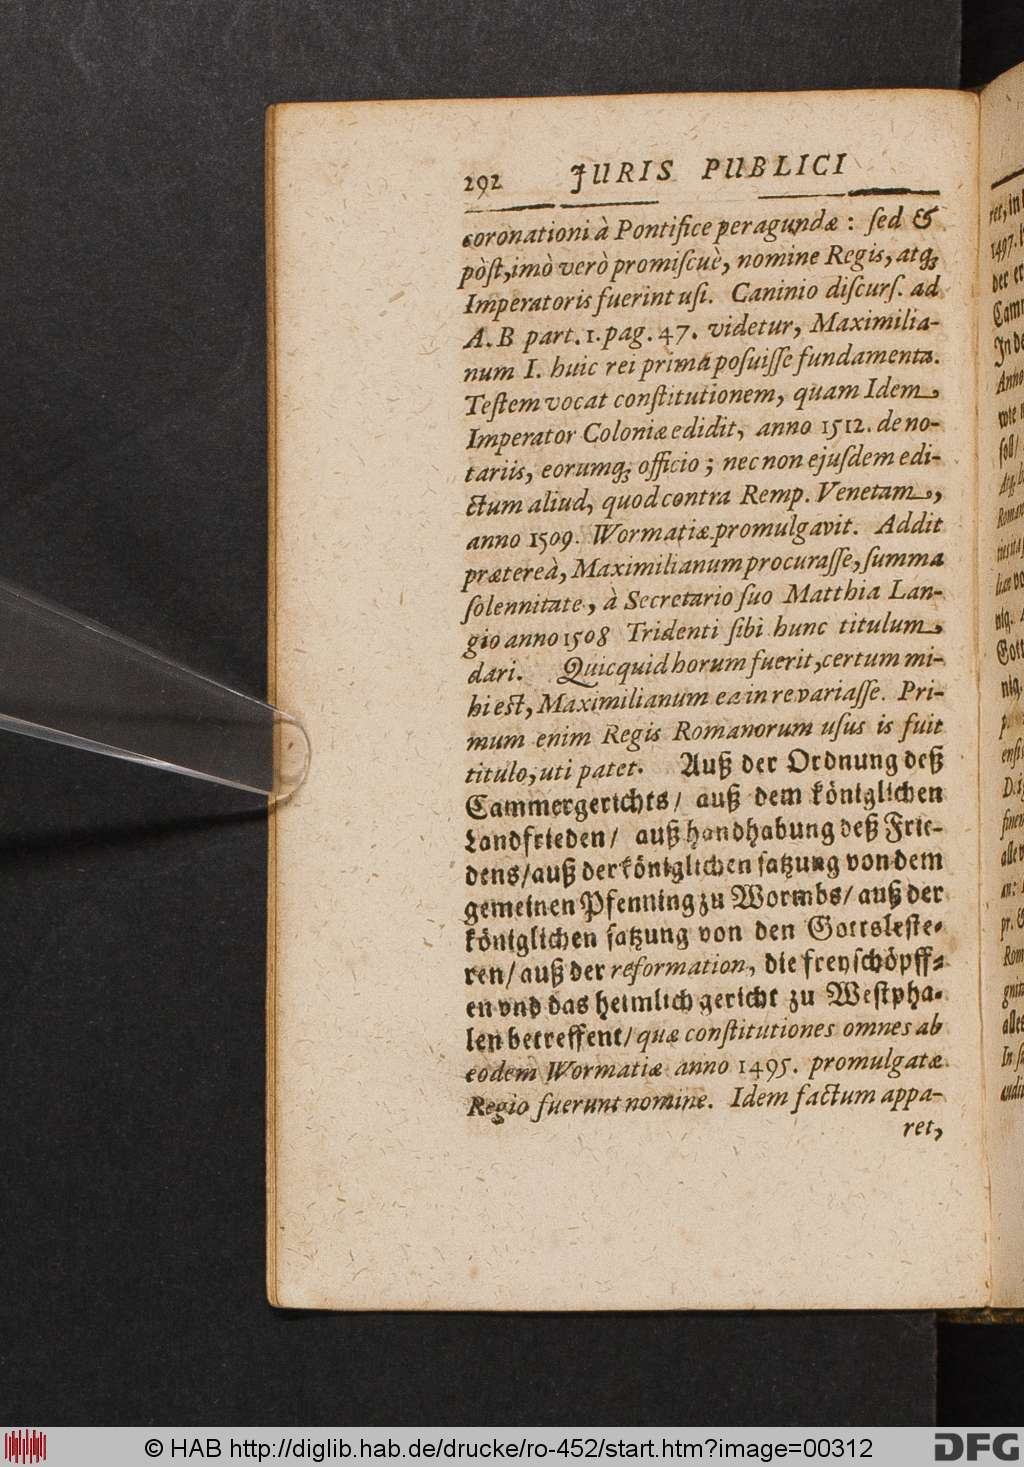 292 JURIS PUBLICI
coronationi à Pontifice peragundæ : sed &
pòst, imò verò promiscuè, nomine Regis, atq;
Imperatoris fuerint usi. Caninio discurs. ad
A.B part. 1. pag. 47. videtur, Maximilia-
num I. huic rei prima posuisse fundamenta.
Testem vocat constitutionem, quam Idem,
Imperator Coloniæ edidit, anno 1512. de no-
tariis, eorumq; officio ; nec non ejusdem edi-
ctum aliud, quod contra Remp. Venetam,
anno 1509. Wormatiæ promulgavit. Addit
prætereà, Maximilianum procurasse, summa
solennitate, à Secretario suo Matthia Lan-
gio anno 1508 Tridenti sibi hunc titulum,
dari. Quicquid horum fuerit, certum mi-
hi est, Maximilianum ea in re variasse. Pri-
mum enim Regis Romanorum usus is fuit
titulo, uti patet. Auß der Ordnung deß
Cammergerichts/ auß dem königlichen
Landfrieden/ auß handhabung deß Frie-
dens/auß der königlichen satzung von dem
gemeinen Pfenning zu Wormbs/ auß der
königlichen satzung von den Gottsleste-
ren/ auß der reformation, die freyschöpff-
en vnd das heimlich gericht zu Westpha-
len betreffent/ quæ constitutiones omnes ab
eodem Wormatiæ anno 1495. promulgatæ
Regio fuerunt nomine. Idem factum appa-
ret,
© HAB http://diglib.hab.de/drucke/ro-452/start.htm?image=00312
DFG